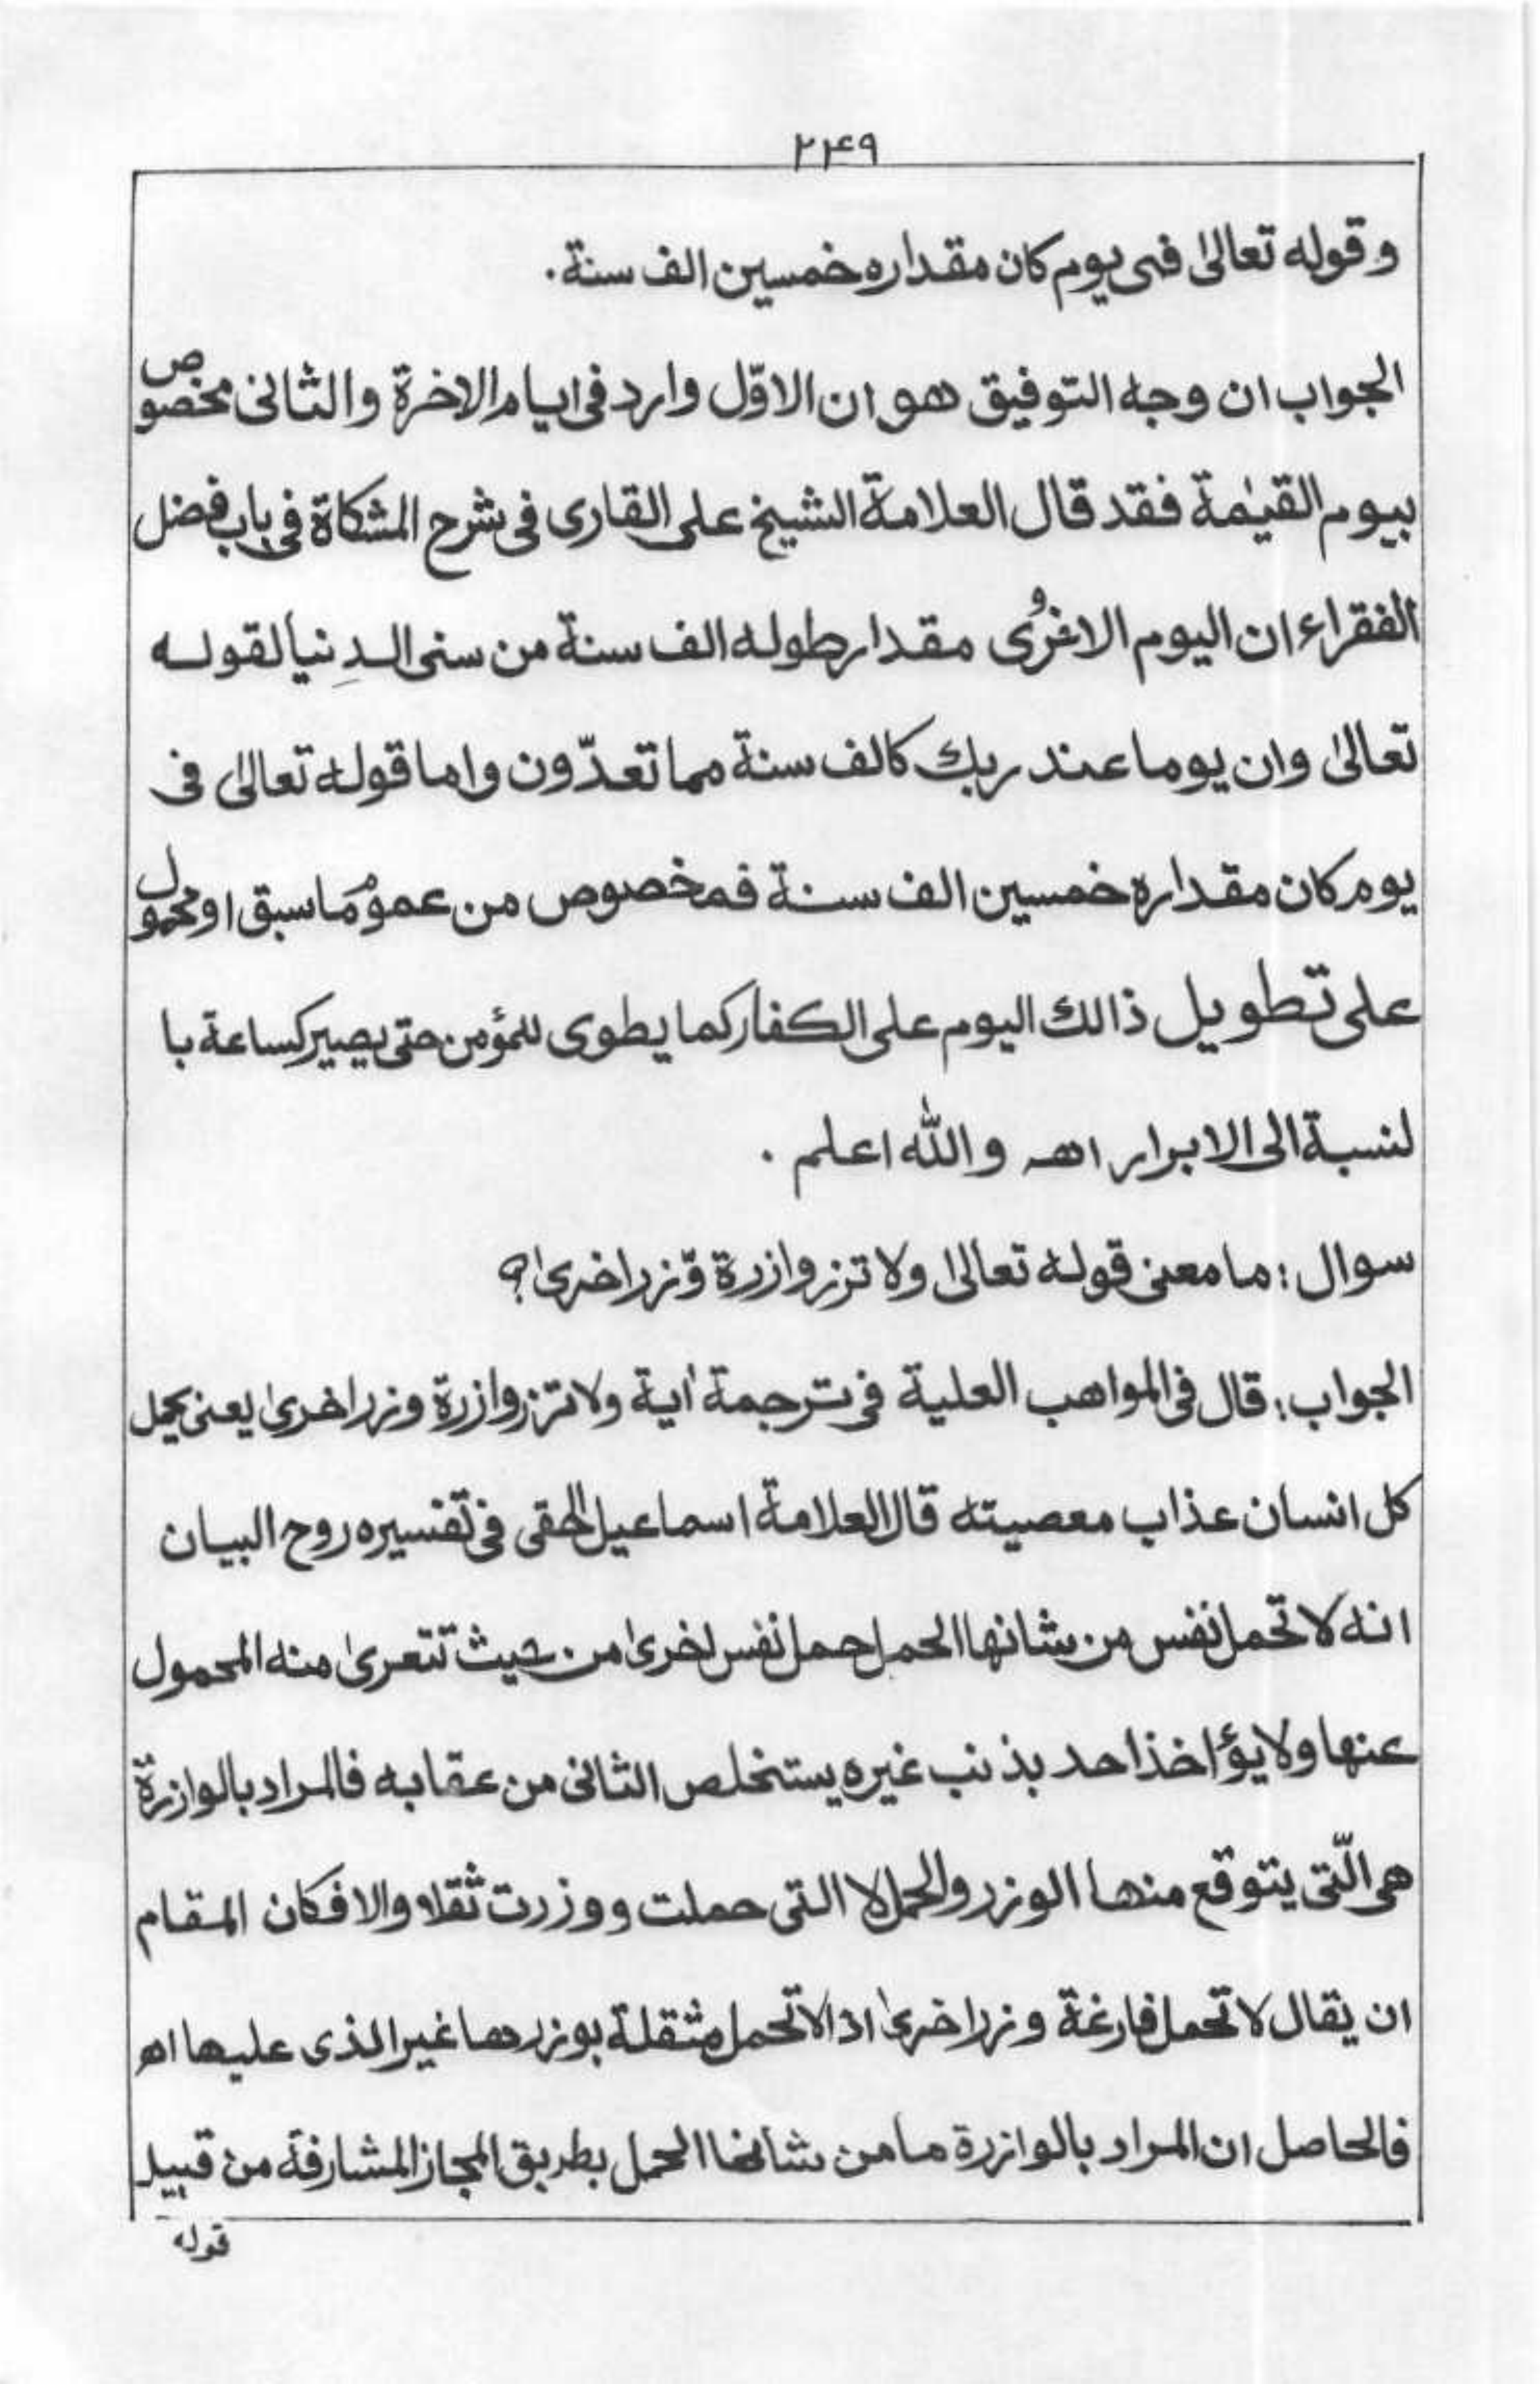 ۲۴۹
وقوله تعالىٰ فى يوم كان مقداره خمسين الف سنة.
الجواب ان وجه التوفيق هو ان الاوّل وارد فى ايام الاخرة والثانى مخصوص
بيوم القيٰمة فقد قال العلامة الشيخ على القارى فى شرح المشكاة فى باب فضل
الفقراء ان اليوم الاخروى مقدار طوله الف سنة من سنى الدنيا لقوله
تعالىٰ وان يوما عند ربك كالف سنة مما تعدّون واما قوله تعالىٰ فى
يوم كان مقداره خمسين الف سنة فمخصوص من عموم ما سبق او محمول
على تطويل ذالك اليوم على الكفار كما يطوى للمؤمن حتى يصير كساعة با
لنسبة الى الابرار اهـ والله اعلم .
سوال : ما معنى قوله تعالىٰ ولا تزر وازرة وّزر اخرىٰ؟
الجواب : قال فى المواهب العلية فى ترجمة اٰية ولا تزر وازرة وزر اخرىٰ يعنى يحمل
كل انسان عذاب معصيته قال العلامة اسماعيل الحقى فى تفسيره روح البيان
انه لا تحمل نفس من شانها الحمل حمل نفس اخرىٰ من حيث تتعرىٰ منه المحمول
عنها ولا يؤاخذ احد بذنب غيره يستخلص الثانى من عقابه فالمراد بالوازرة
هى الّتى يتوقع منها الوزر والحمل لا التى حملت ووزرت ثقلا والا فكان المقام
ان يقال لا تحمل فارغة وزر اخرىٰ اذ لا تحمل مثقلة بوزرها غير الذى عليها اهـ
فالحاصل ان المراد بالوازرة ما من شانها الحمل بطريق المجاز المشارفة من قبيل
قوله